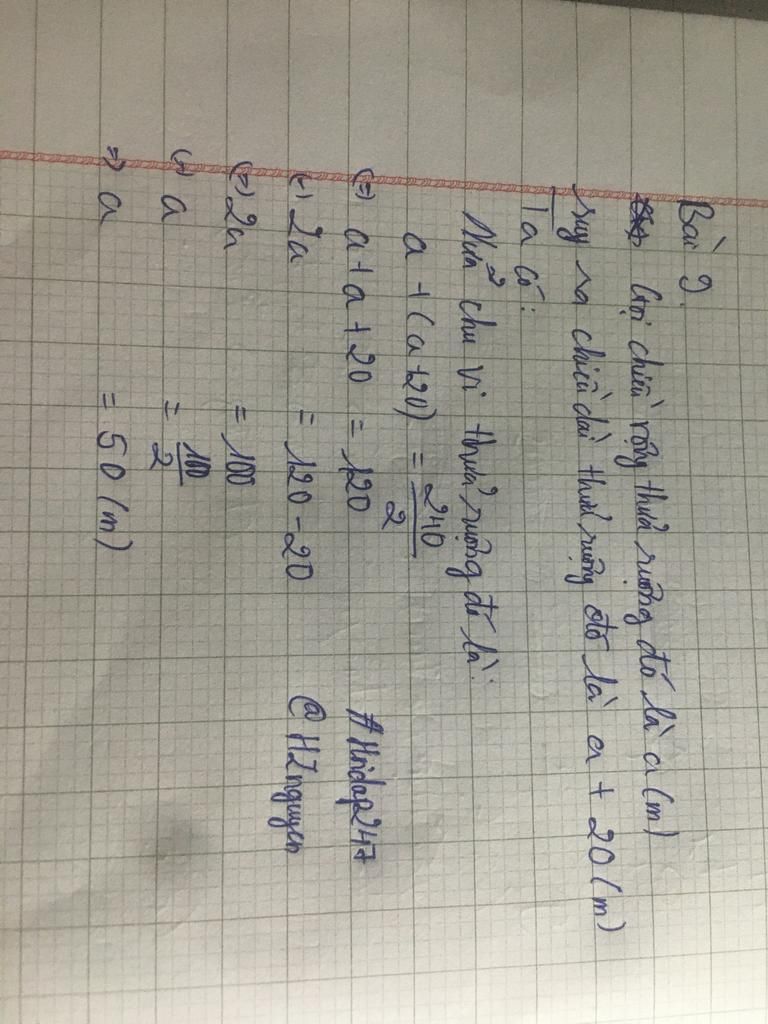 Bài 9.
Gọi chiều rộng thửa ruộng đó là a (m)
suy ra chiều dài thửa ruộng đó là a + 20 (m)
Ta có:
Nửa chu vi thửa ruộng đó là:
a + (a+20) = 240/2
(=) a + a + 20 = 120
(=) 2a = 120 - 20
(=) 2a = 100
(=) a = 100/2
=> a = 50 (m)
#Hoidap247
@HInguyen